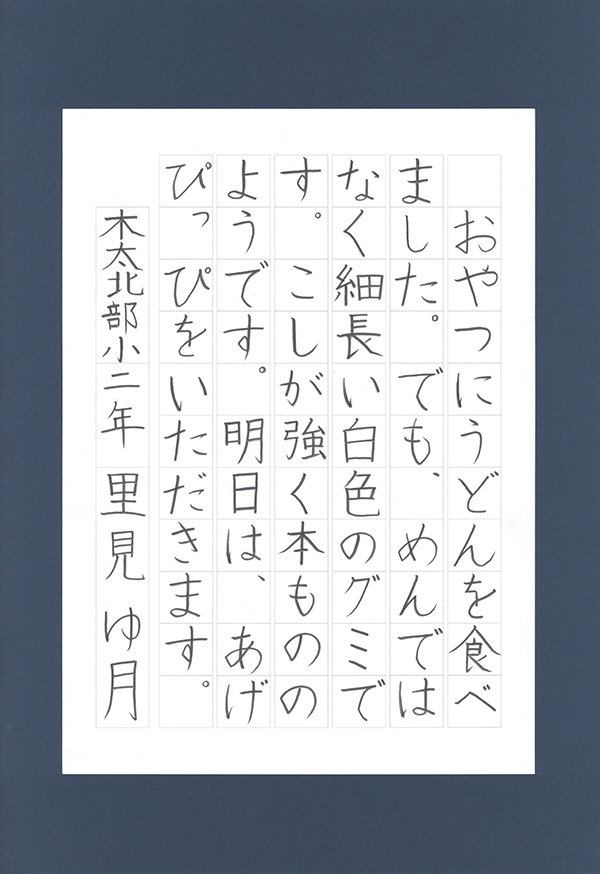 おやつにうどんを食べ
ました。でも、めんでは
なく細長い白色のグミで
す。こしが強く本ものの
ようです。明日は、あげ
ぴっぴをいただきます。
木太北部小二年 里見 ゆ月